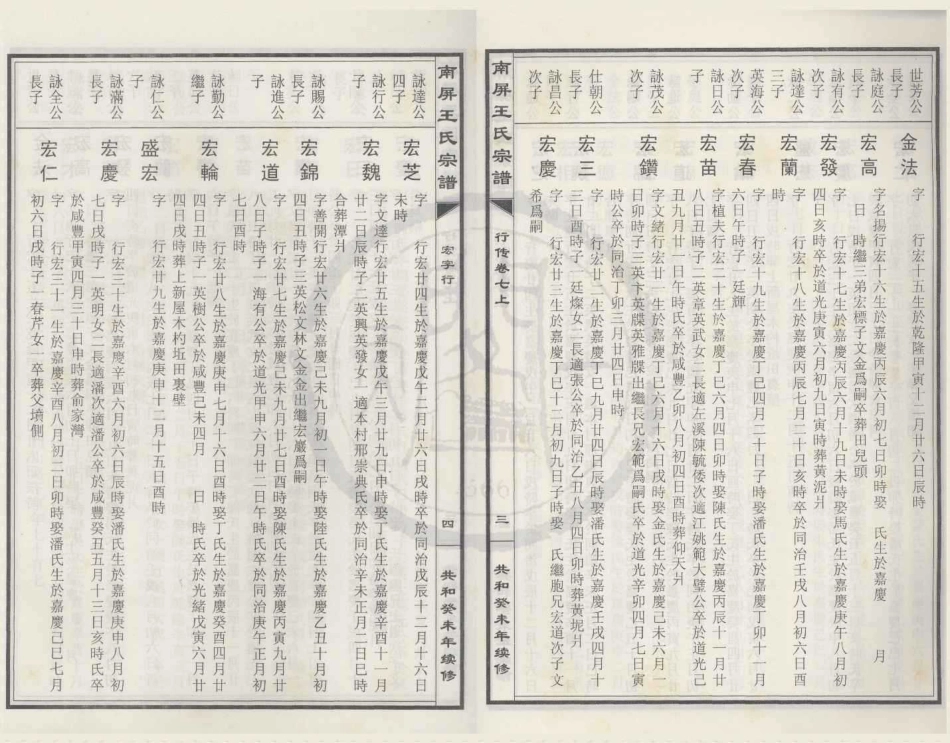 世芳公
長子
金法
字　行宏十五生於乾隆甲寅十二月廿六日辰時
詠庭公
長子
宏高
字名揚行宏十六生於嘉慶丙辰六月初七日卯時娶　氏生於嘉慶　月
日　時繼三弟宏標子文金爲嗣卒葬田兒頭
詠有公
次子
宏發
字　行宏十七生於嘉慶丙辰六月十九日未時娶馬氏生於嘉慶庚午八月初
四日亥時卒於道光庚寅六月初九日寅時葬黄泥爿
詠達公
三子
宏蘭
字　行宏十八生於嘉慶丙辰七月二十日亥時卒於同治壬戌八月初六日酉
時
英海公
次子
宏春
字　行宏十九生於嘉慶丁巳四月二十日子時娶潘氏生於嘉慶丁卯十一月
六日午時子一廷輝
詠日公
子
宏苗
字植夫行宏二十生於嘉慶丁巳六月四日卯時娶陳氏生於嘉慶丙辰十一月廿
八日丑時子二英章英武女二長適左溪陳毓倭次適江姚範大璧公卒於道光己
丑九月廿一日午時氏卒於咸豐乙卯八月初四日酉時葬仰天爿
詠茂公
次子
宏鑽
字文緒行宏廿一生於嘉慶丁巳六月十六日戌時娶金氏生於嘉慶己未六月一
日卯時子三英卞英牒英雅牒出繼長兄宏範爲嗣氏卒於道光辛卯四月七日寅
時公卒於同治丁卯三月廿四日申時
仕朝公
長子
宏三
字　行宏廿二生於嘉慶丁巳九月廿四日辰時娶潘氏生於嘉慶壬戌四月十
三日酉時子一廷燦女二長適張公卒於同治乙丑八月四日卯時葬黄坭爿
詠昌公
次子
宏慶
字　行宏廿三生於嘉慶丁巳十二月初九日子時娶　氏繼胞兄宏道次子文
希爲嗣
南屏王氏宗譜
行传卷七上
三
共和癸未年续修
南屏王氏宗譜
宏字行
四
共和癸未年续修
詠達公
四子
宏芝
字　行宏廿四生於嘉慶戊午二月廿六日戌時卒於同治戊辰十二月十六日
未時
詠行公
子
宏魏
字文達行宏廿五生於嘉慶戊午三月廿九日申時娶丁氏生於嘉慶辛酉十一月
廿二日辰時子二英興英發女一適本村邢崇典氏卒於同治辛未正月二日巳時
合葬潭爿
詠賜公
長子
宏錦
字善開行宏廿六生於嘉慶己未九月初一日午時娶陸氏生於嘉慶乙丑十月
四日丑時子三英松文林文金金出繼宏巖爲嗣
詠進公
子
宏道
字　行宏廿七生於嘉慶己未九月廿七日酉時娶陳氏生於嘉慶丙寅九月廿
八日子時子一海有公卒於道光甲申六月廿二日午時氏卒於同治庚午正月初
七日酉時
詠勤公
繼子
宏輪
字　行宏廿八生於嘉慶庚申七月十六日酉時娶丁氏生於嘉慶癸酉四月廿
四日丑時子一英樹公卒於咸豐己未四月　日　時氏卒於光緒戊寅六月廿
四日戌時葬上新屋木杓坵田裏壁
詠仁公
子
盛宏
字　行宏廿九生於嘉慶庚申十二月十五日酉時
詠滿公
長子
宏慶
字　行宏三十生於嘉慶辛酉六月初六日辰時娶潘氏生於嘉慶庚申八月初
七日戌時子一英明女二長適潘次適潘公卒於咸豐癸丑五月十三日亥時氏卒
於咸豐甲寅四月三十日申時葬俞家灣
詠全公
長子
宏仁
字　行宏三十一生於嘉慶辛酉八月初二日卯時娶潘氏生於嘉慶己巳七月
初六日戌時子一春芹女一卒葬父墳側